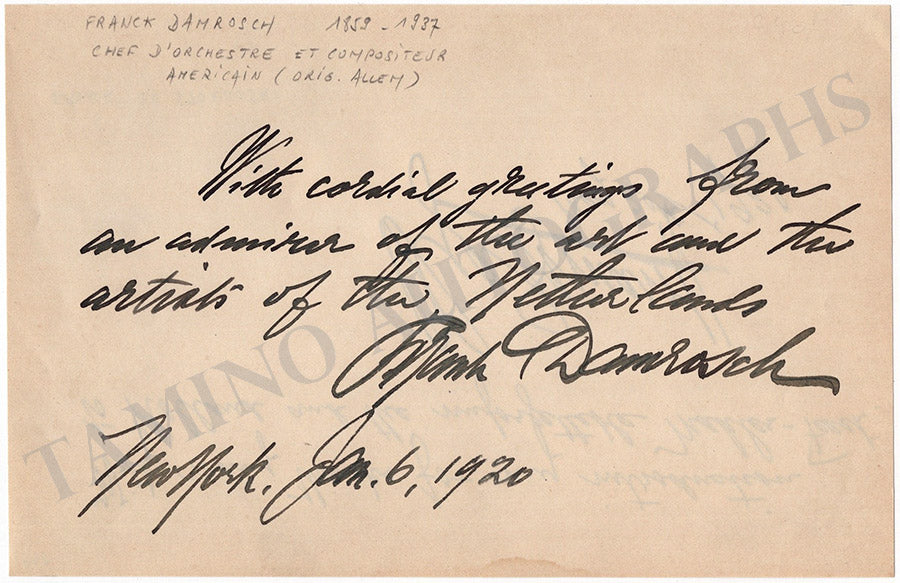 FRANCK DAMROSCH 1859-1937
CHEF D'ORCHESTRE ET COMPOSITEUR
AMERICAIN (ORIG. ALLEM)
With cordial greetings from
an admirer of the art and the
artists of the Netherlands
Frank Damrosch
New York, Jan. 6, 1920
TAMINO AUTOGRAPHS